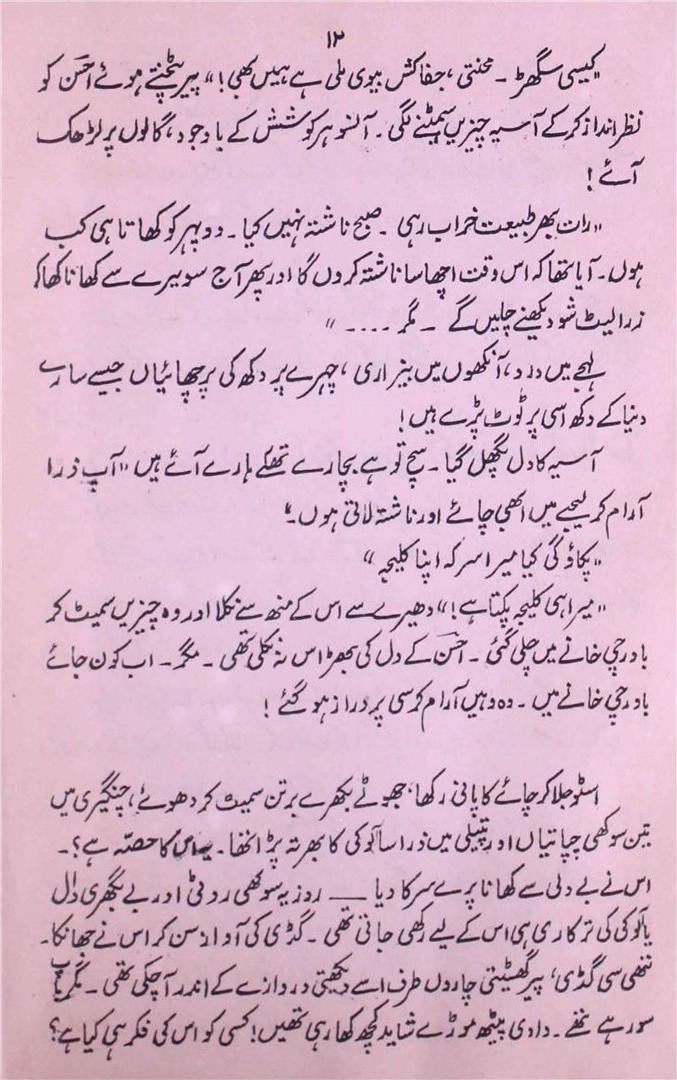 ۱۲
"کیسی سگھڑ ۔ محنتی ، جفاکش بیوی ملی ہے ہمیں بھی !" پیر پٹختے ہوئے احسن کو
نظرانداز کر کے آسیہ چیزیں سمیٹنے لگی ۔ آنسو ہر کوشش کے باوجود، گالوں پر لڑھک
آئے !
"رات بھر طبیعت خراب رہی ۔ صبح ناشتہ نہیں کیا ۔ دوپہر کو کھاتا ہی کب
ہوں ۔ آیا تھا کہ اس وقت اچھا سا ناشتہ کروں گا اور پھر آج سویرے سے کھانا کھا کر
ذرا لیٹ شو دیکھنے چلیں گے ۔ مگر ...."
لہجے میں درد، آنکھوں میں بیزاری ، چہرے پر دکھ کی پرچھائیاں جیسے سارے
دنیا کے دکھ اسی پر ٹوٹ پڑے ہیں !
آسیہ کا دل پگھل گیا ۔ سچ تو ہے بچارے تھکے ہارے آئے ہیں "آپ ذرا
آرام کر لیجیے میں ابھی چائے اور ناشتہ لاتی ہوں ۔"
"پکاؤ گی کیا میرا سر کہ اپنا کلیجہ"
"میرا ہی کلیجہ پکتا ہے !" دھیرے سے اس کے منھ سے نکلا اور وہ چیزیں سمیٹ کر
باورچی خانے میں چلی گئی ۔ احسن کے دل کی بھڑاس نہ نکلی تھی ۔ مگر ۔ اب کون جائے
باورچی خانے میں ۔ وہ وہیں آرام کرسی پر دراز ہو گئے !
اسٹو جلا کر چائے کا پانی رکھا، جھوٹے بکھرے برتن سمیٹ کر دھوئے، چنگیری میں
تین سوکھی چپاتیاں اور پتیلی میں ذرا سا لوکی کا بھرتہ پڑا تھا ۔ یہ اس کا حصہ ہے؟ ۔
اس نے بے دلی سے کھانا پرے سرکا دیا ـــ روز یہ سوکھی روٹی اور بے بگھری دال
یا لوکی کی ترکاری ہی اس کے لیے رکھی جاتی تھی ۔ گڈی کی آواز سن کر اس نے جھانکا ۔
ننھی سی گڈی، پیر گھسیٹتی چاروں طرف اسے دیکھتی دروازے کے اندر آ چکی تھی ۔ مگر پاپ
سو رہے تھے ۔ دادی پیٹھ موڑے شاید کچھ کھا رہی تھیں! کسی کو اس کی فکر ہی کیا ہے؟